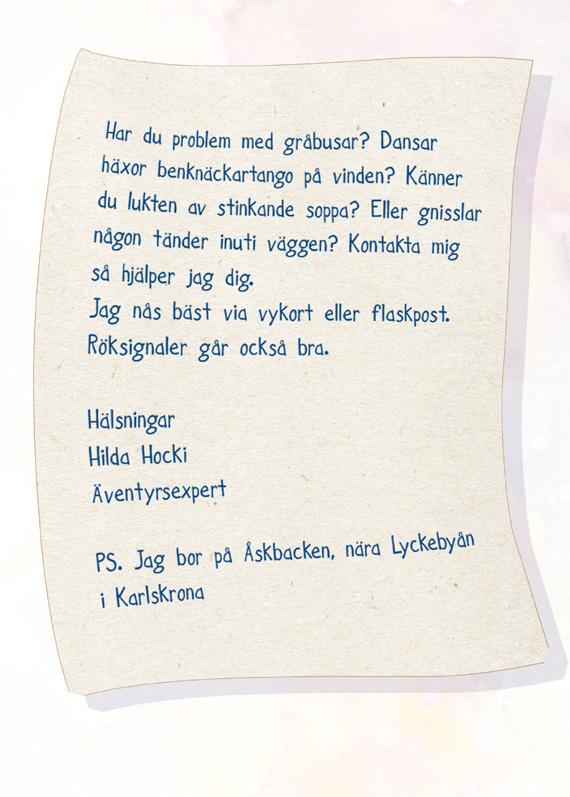 Har du problem med gråbusar? Dansar
häxor benknäckartango på vinden? Känner
du lukten av stinkande soppa? Eller gnisslar
någon tänder inuti väggen? Kontakta mig
så hjälper jag dig.
Jag nås bäst via vykort eller flaskpost.
Röksignaler går också bra.
Hälsningar
Hilda Hocki
Äventyrsexpert
PS. Jag bor på Åskbacken, nära Lyckebyån
i Karlskrona